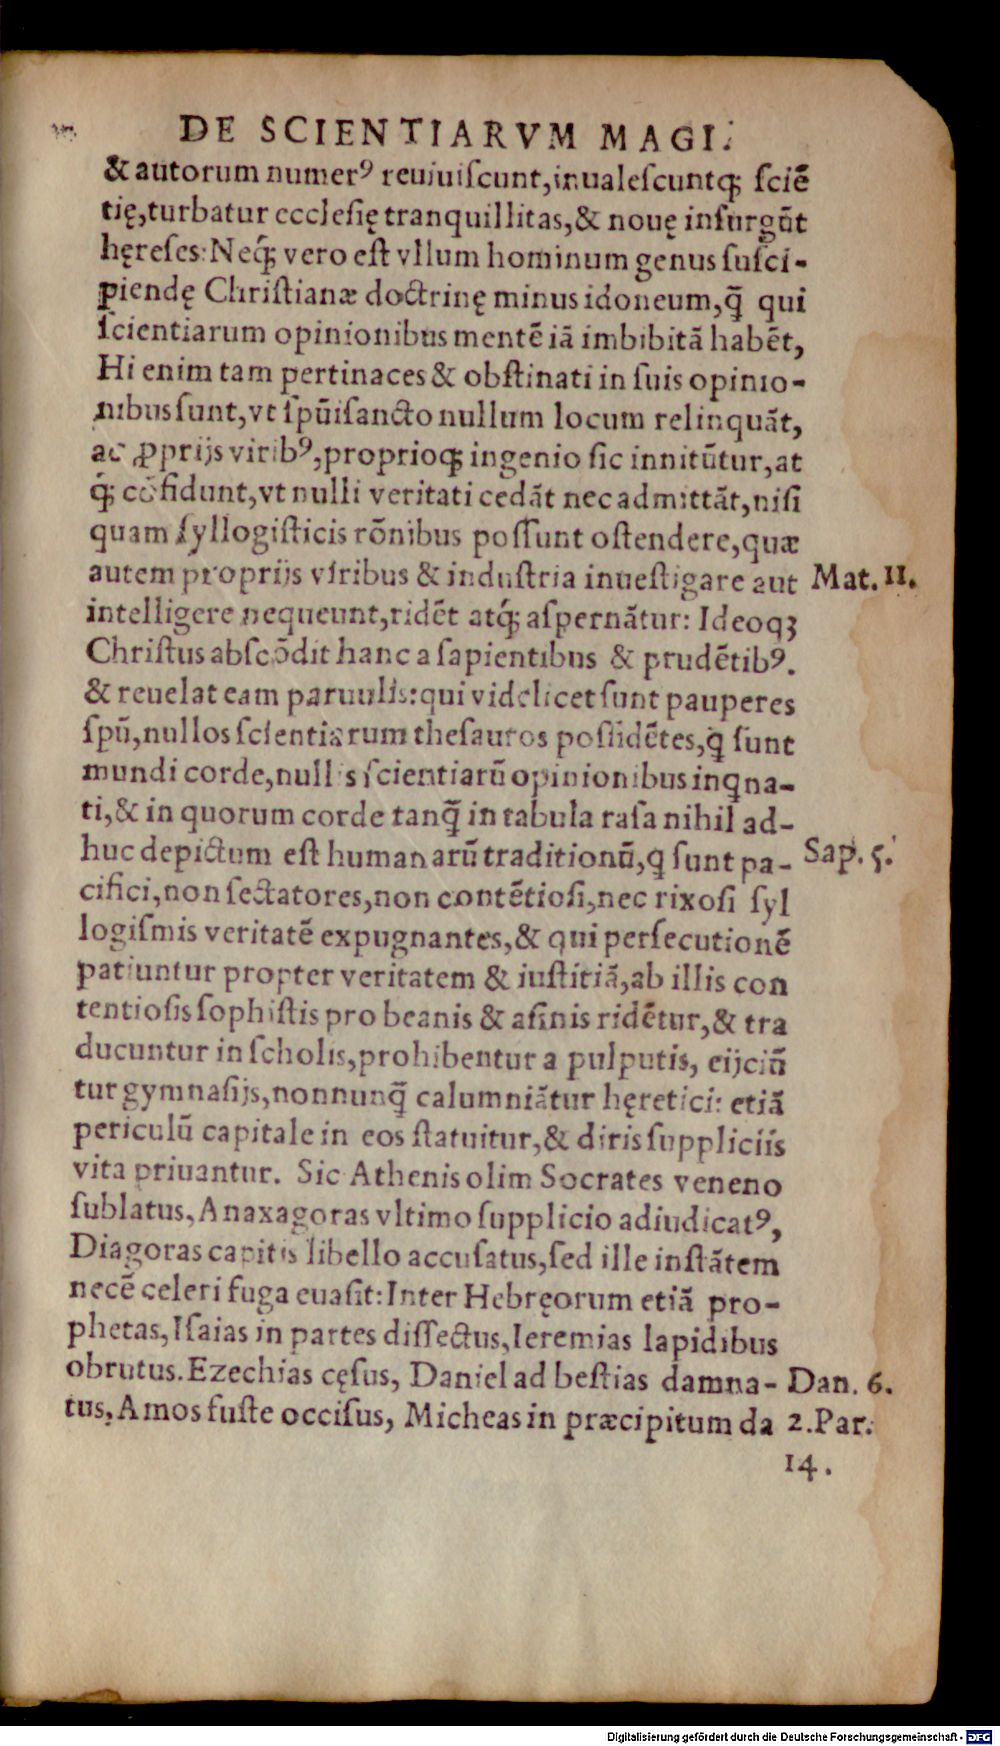 DE SCIENTIARVM MAGI.
& autorum numerꝰ reuiuiſcunt, inualeſcuntq; ſciē
tię, turbatur eccleſię tranquillitas, & nouę inſurgūt
hęreſes: Neq; vero eſt vllum hominum genus ſuſci-
piendę Chriſtianæ doctrinę minus idoneum, q̄ qui
ſcientiarum opinionibus mentē iā imbibitā habēt,
Hi enim tam pertinaces & obſtinati in ſuis opinio-
nibus ſunt, vt ſpūiſancto nullum locum relinquāt,
ac ꝓprijs viribꝰ, proprioq; ingenio ſic innitūtur, at
q; cōfidunt, vt nulli veritati cedāt nec admittāt, niſi
quam ſyllogiſticis rōnibus poſſunt oſtendere, quæ
autem proprijs viribus & induſtria inueſtigare aut Mat. 11.
intelligere nequeunt, ridēt atq; aſpernātur: Ideoqꝫ
Chriſtus abſcōdit hanc a ſapientibus & prudētibꝰ.
& reuelat eam paruulis: qui videlicet ſunt pauperes
ſpū, nullos ſcientiarum theſauros poſſidētes, ꝗ ſunt
mundi corde, nullis ſcientiarū opinionibus inꝗna-
ti, & in quorum corde tanq̄ in tabula raſa nihil ad-
huc depictum eſt humanarū traditionū, ꝗ ſunt pa- Sap. 5.
cifici, non ſectatores, non contētioſi, nec rixoſi ſyl
logiſmis veritatē expugnantes, & qui perſecutionē
patiuntur propter veritatem & iuſtitiā, ab illis con
tentioſis ſophiſtis pro beanis & aſinis ridētur, & tra
ducuntur in ſcholis, prohibentur a pulputis, eijciū
tur gymnaſijs, nonnunq̄ calumniātur hęretici: etiā
periculū capitale in eos ſtatuitur, & diris ſuppliciis
vita priuantur. Sic Athenis olim Socrates veneno
ſublatus, Anaxagoras vltimo ſupplicio adiudicatꝰ,
Diagoras capitis libello accuſatus, ſed ille inſtātem
necē celeri fuga euaſit: Inter Hebręorum etiā pro-
phetas, Iſaias in partes diſſectus, Ieremias lapidibus
obrutus. Ezechias cęſus, Daniel ad beſtias damna- Dan. 6.
tus, Amos fuſte occiſus, Micheas in præcipitum da 2. Par.
14.
Digitalisierung gefördert durch die Deutsche Forschungsgemeinschaft - DFG